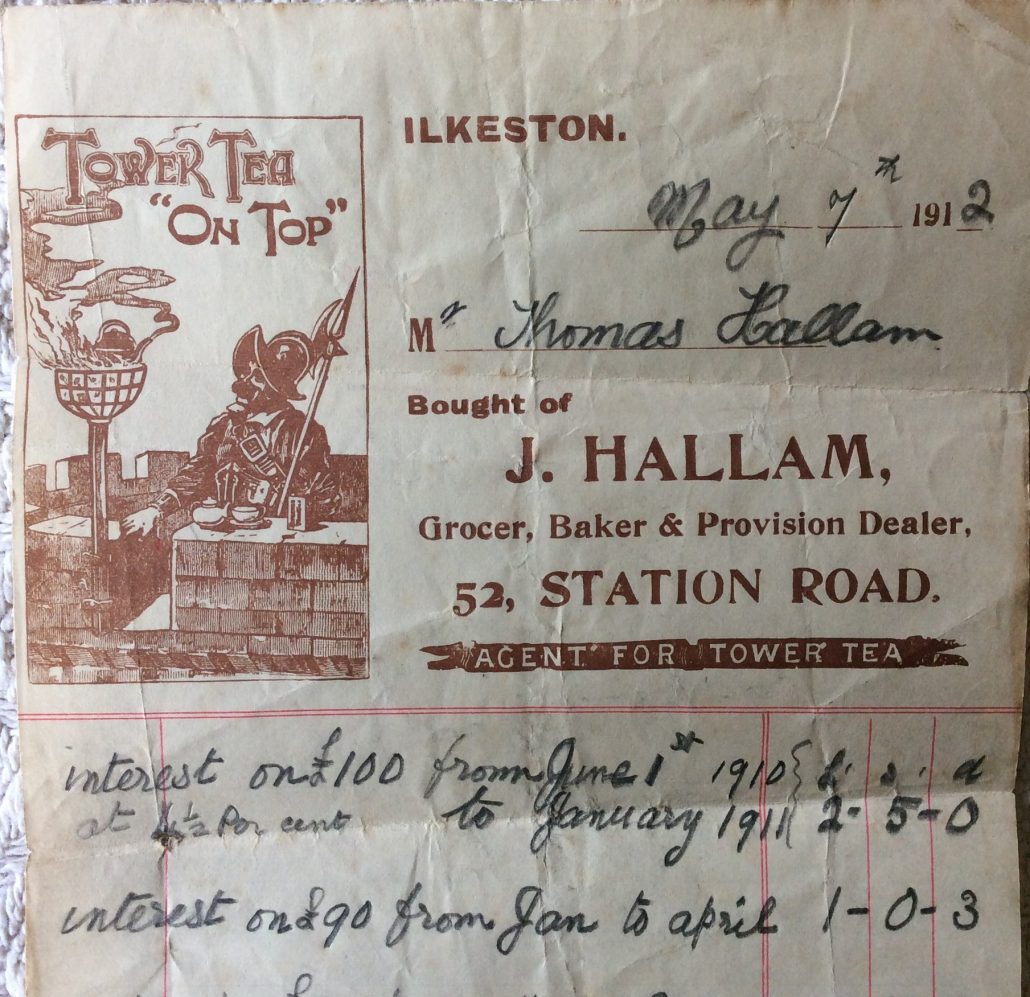 TOWER TEA
"ON TOP"
ILKESTON.
May 7th 1912
Mr Thomas Hallam
Bought of
J. HALLAM,
Grocer, Baker & Provision Dealer,
52, STATION ROAD.
AGENT FOR TOWER TEA
interest on £100 from June 1st 1910 { £ . s . d
at 4½ Per cent to January 1911 { 2 - 5 - 0
interest on £90 from Jan to april 1 - 0 - 3